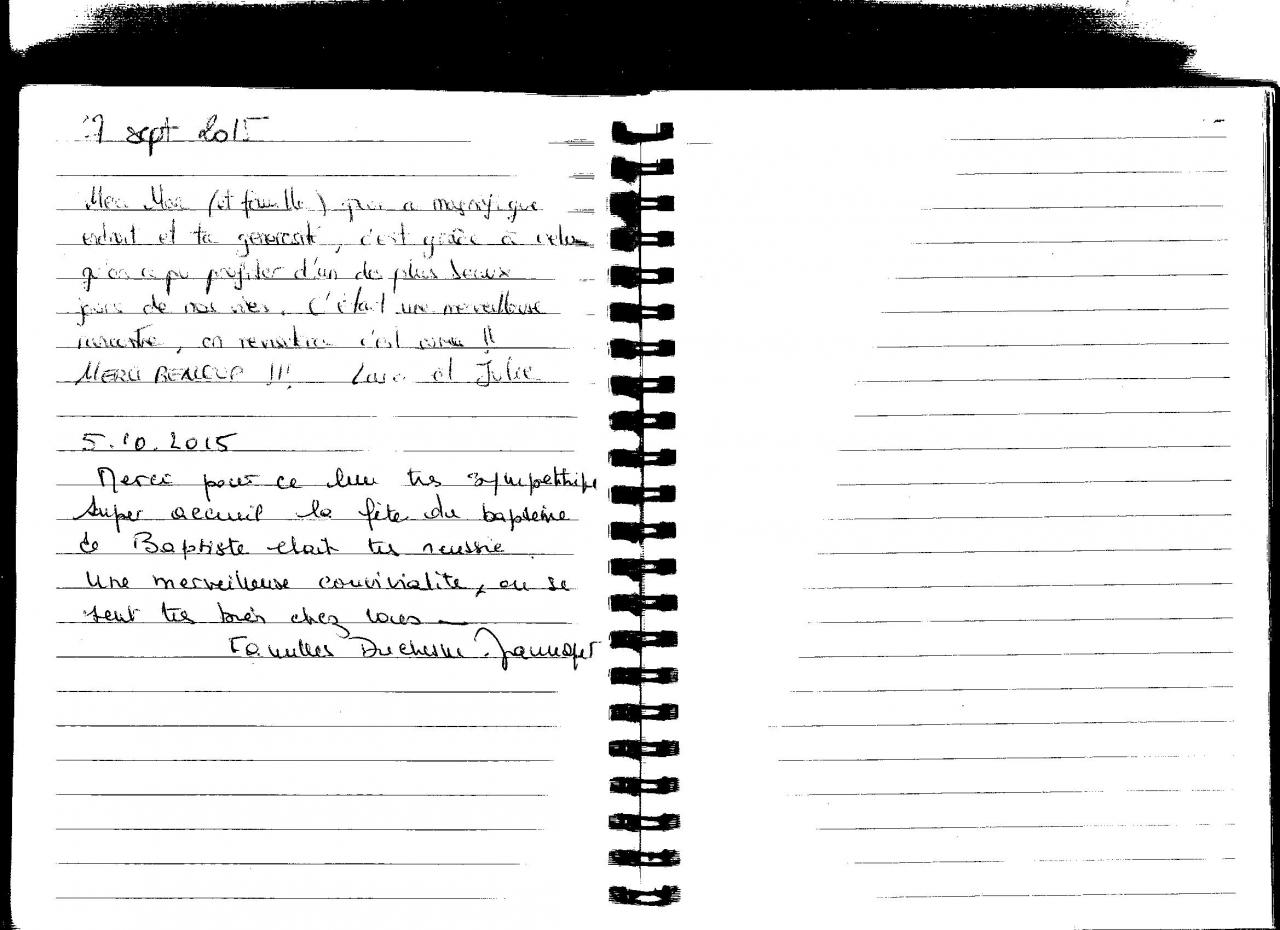 7 sept 2015
Merci Max (et famille) pour ce magnifique
endroit et ta générosité, c'est grâce à cela
qu'on a pu profiter d'un des plus beaux
jours de nos vies. C'était une merveilleuse
rencontre, on reviendra c'est !!
MERCI BEAUCOUP !!! et Julie
5.10.2015
Merci pour ce lieu très sympathique
Super accueil la fête du baptême
de Baptiste était très réussie.
Une merveilleuse convivialité, on se
sent très bien chez vous
Familles Duchesne